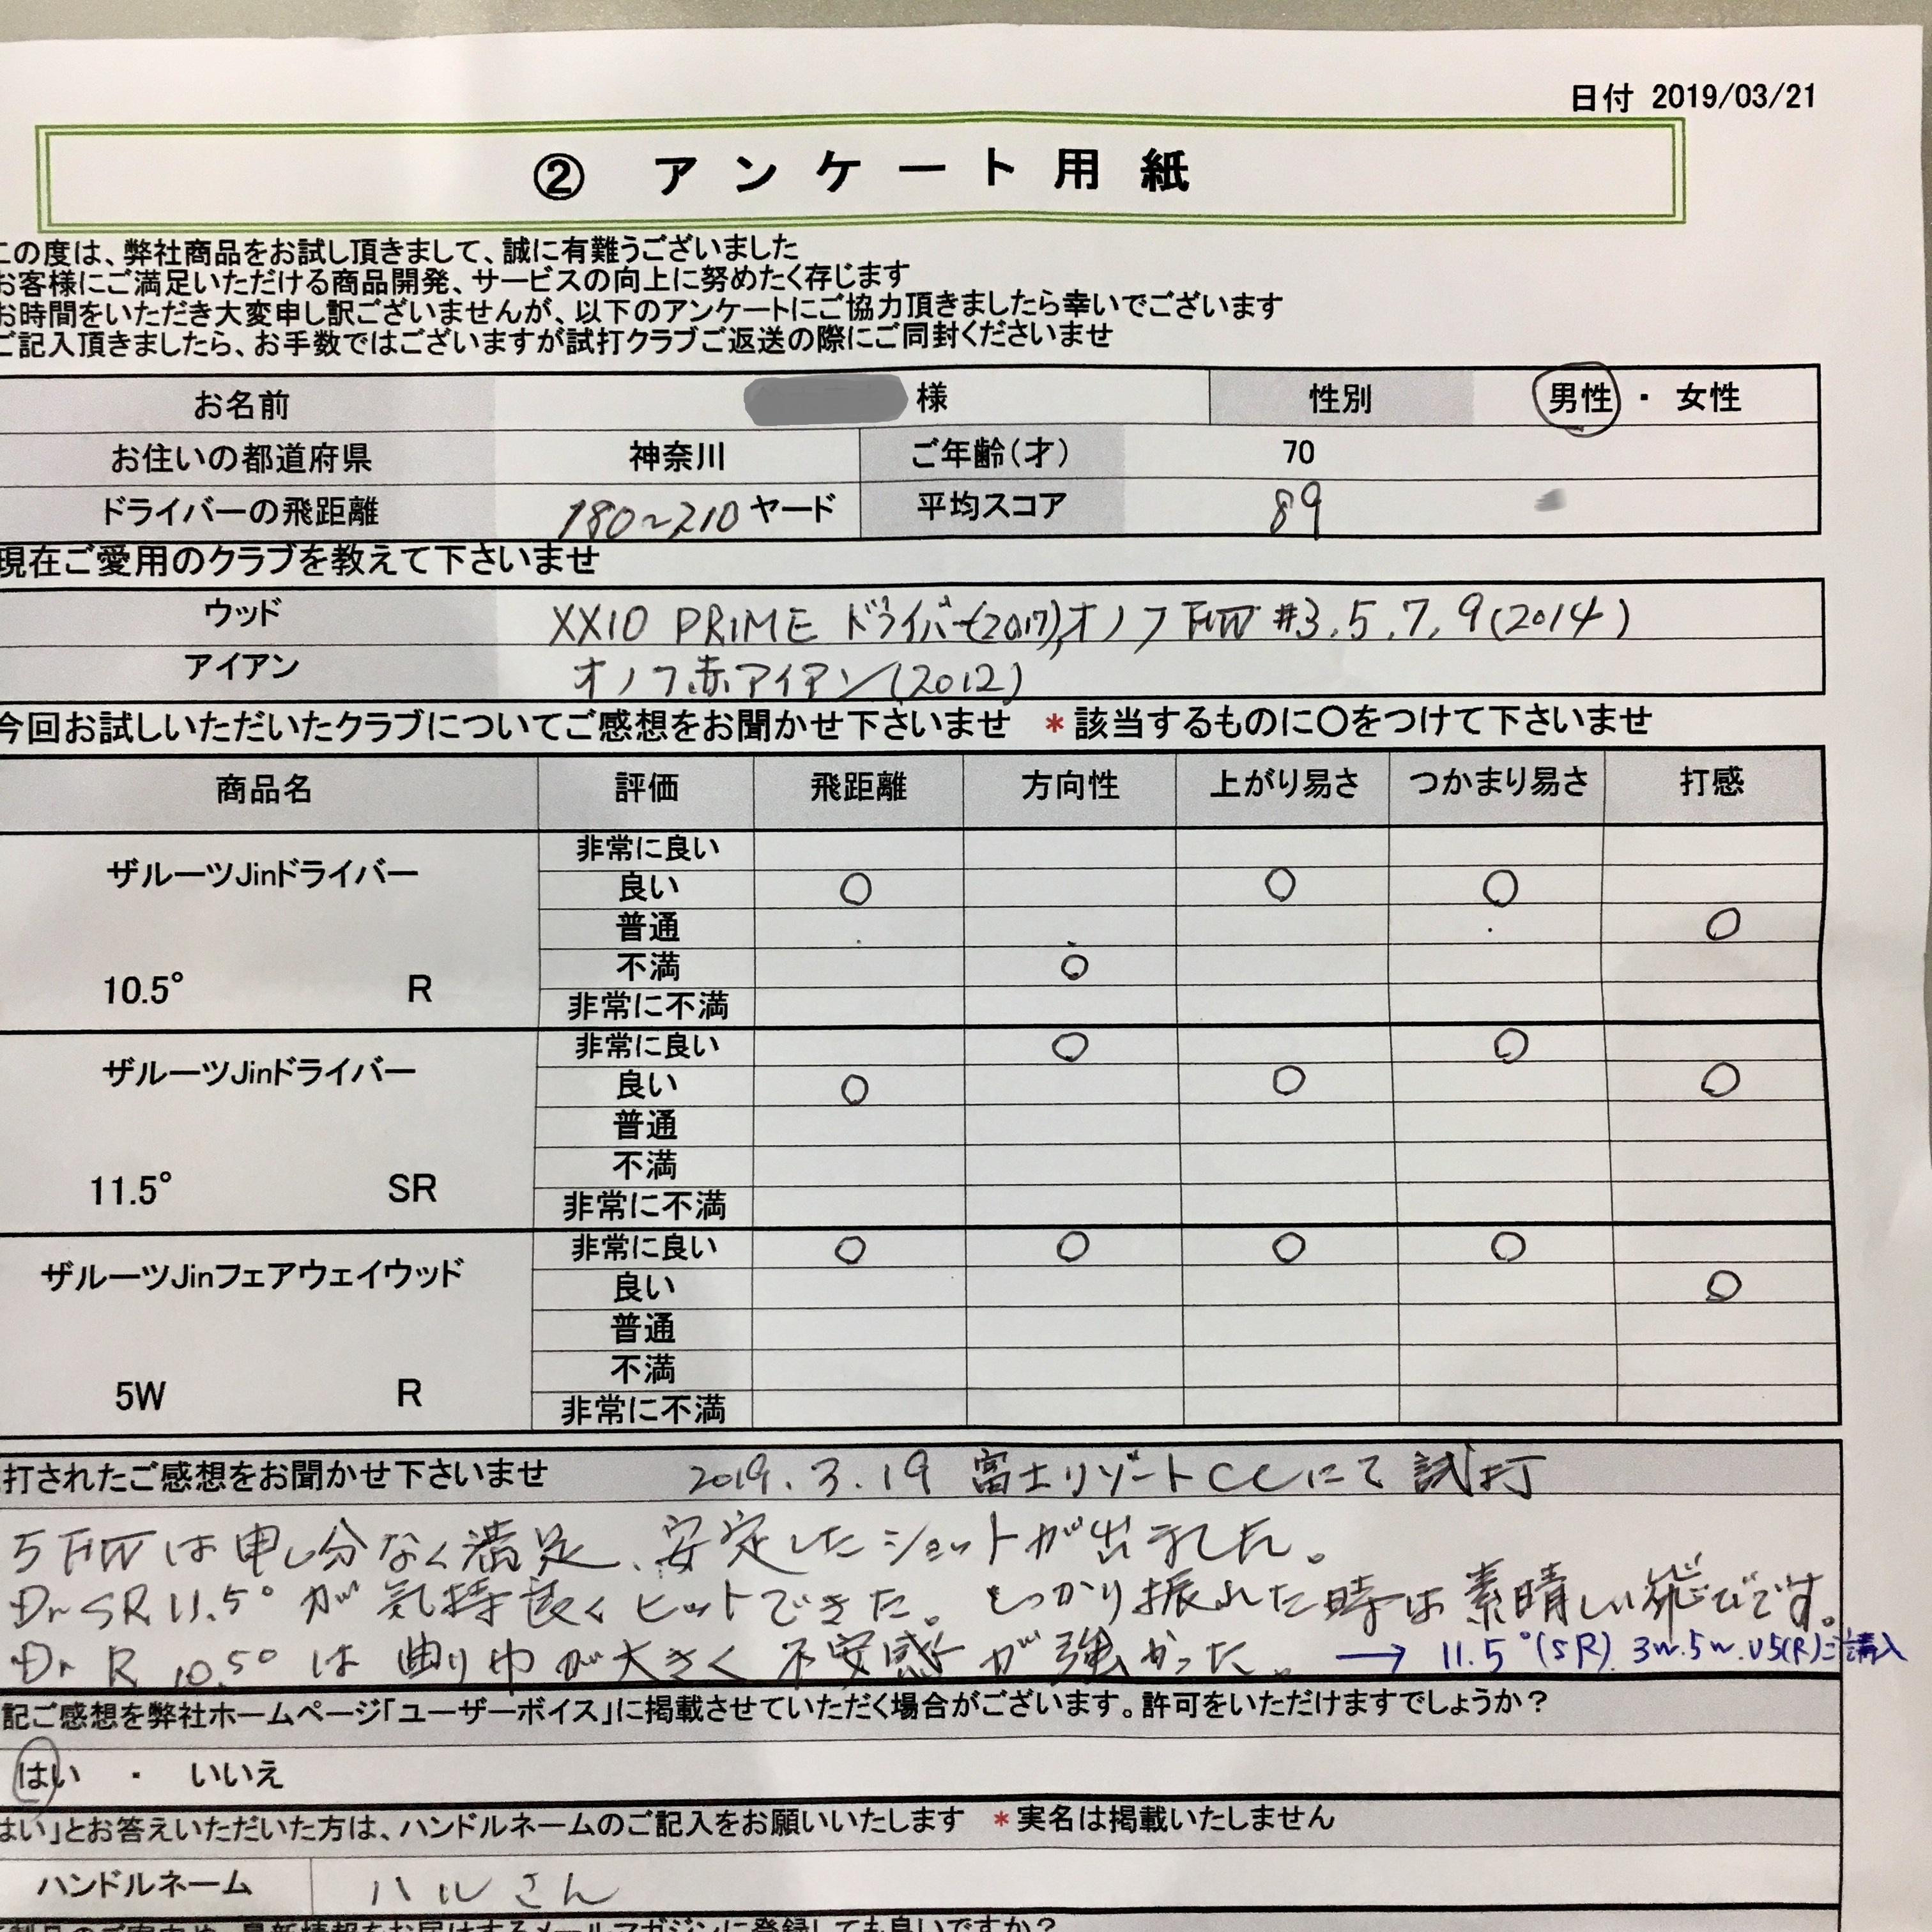 日付 2019/03/21
② アンケート用紙
この度は、弊社商品をお試し頂きまして、誠に有難うございました
お客様にご満足いただける商品開発、サービスの向上に努めたく存じます
お時間をいただき大変申し訳ございませんが、以下のアンケートにご協力頂きましたら幸いでございます
ご記入頂きましたら、お手数ではございますが試打クラブご返送の際にご同封くださいませ
お名前 様 性別 男性 ・ 女性
お住いの都道府県 神奈川 ご年齢(才) 70
ドライバーの飛距離 180~210 ヤード 平均スコア 89
現在ご愛用のクラブを教えて下さいませ
ウッド XXIO PRIME ドライバー(2017),オノフ FW #3,5,7,9(2014)
アイアン オノフ赤アイアン(2012)
今回お試しいただいたクラブについてご感想をお聞かせ下さいませ *該当するものに〇をつけて下さいませ
商品名 評価 飛距離 方向性 上がり易さ つかまり易さ 打感
ザルーツJinドライバー
10.5° R
非常に良い
良い ○ ○ ○
普通 ○
不満 ○
非常に不満
ザルーツJinドライバー
11.5° SR
非常に良い ○ ○
良い ○ ○ ○
普通
不満
非常に不満
ザルーツJinフェアウェイウッド
5W R
非常に良い ○ ○ ○ ○
良い ○
普通
不満
非常に不満
打されたご感想をお聞かせ下さいませ 2019.3.19 富士リゾートCCにて試打
5FWは申し分なく満足、安定したショットが出ました。
Dr SR 11.5°が気持良くヒットできた。しっかり振れた時は素晴しい飛びです。
Dr R 10.5°は曲り巾が大きく不安感が強かった。 → 11.5°(SR). 3w.5w.U5(R)ご購入
記ご感想を弊社ホームページ「ユーザーボイス」に掲載させていただく場合がございます。許可をいただけますでしょうか?
はい ・ いいえ
はい」とお答えいただいた方は、ハンドルネームのご記入をお願いいたします *実名は掲載いたしません
ハンドルネーム ハルさん
製品のご案内や、最新情報をお届けするメールマガジンに登録しても良いですか?